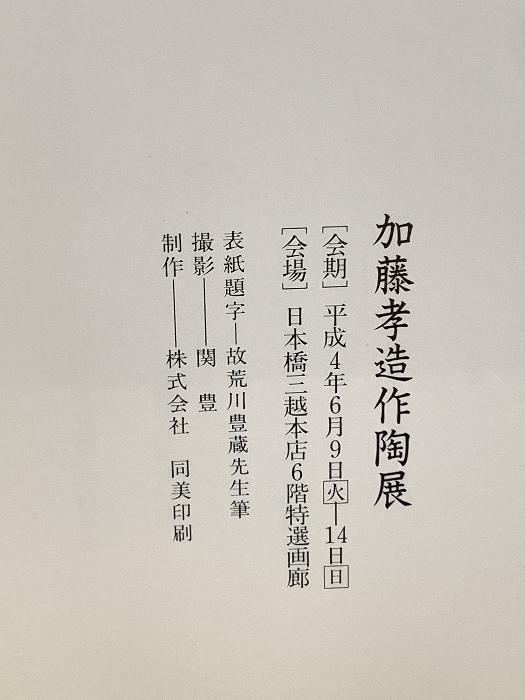 加藤孝造作陶展
［会期］平成4年6月9日火―14日日
［会場］日本橋三越本店6階特選画廊
表紙題字―故荒川豊蔵先生筆
撮影――関　豊
制作――株式会社　同美印刷